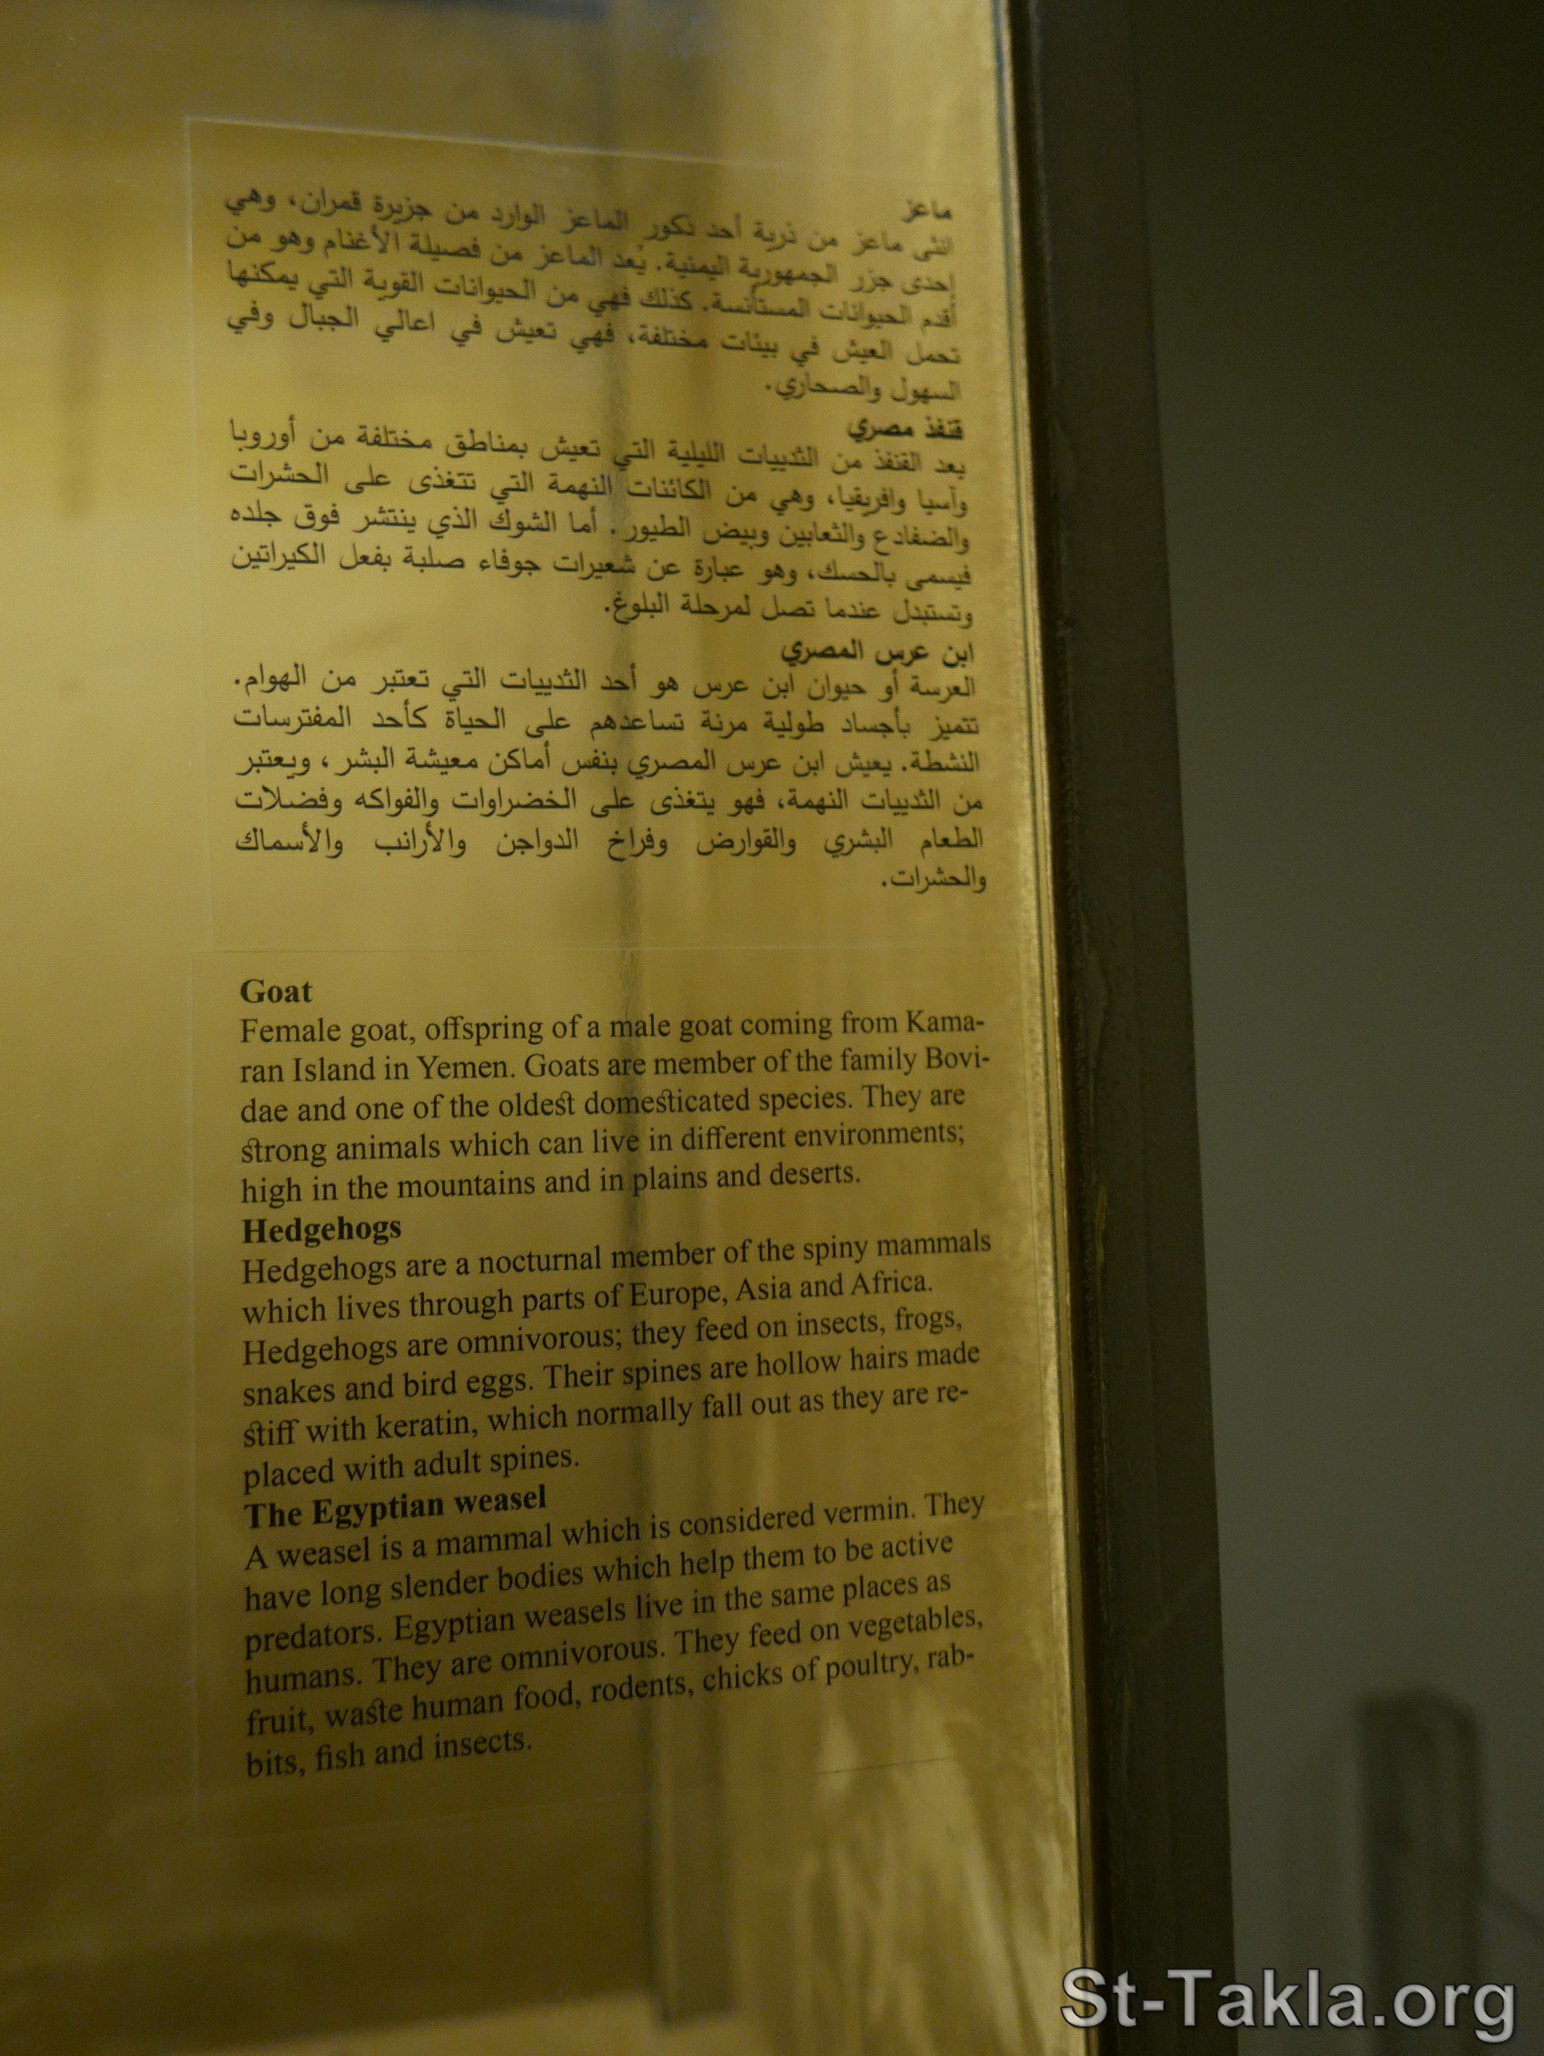 ماعز
انثى ماعز من ذرية أحد ذكور الماعز الوارد من جزيرة قمران، وهي
إحدى جزر الجمهورية اليمنية. يُعد الماعز من فصيلة الأغنام وهو من
أقدم الحيوانات المستأنسة. كذلك فهي من الحيوانات القوية التي يمكنها
تحمل العيش في بيئات مختلفة، فهي تعيش في اعالي الجبال وفي
السهول والصحاري.
قنفذ مصري
يعد القنفذ من الثدييات الليلية التي تعيش بمناطق مختلفة من أوروبا
وآسيا وافريقيا، وهي من الكائنات النهمة التي تتغذى على الحشرات
والضفادع والثعابين وبيض الطيور. أما الشوك الذي ينتشر فوق جلده
فيسمى بالحسك، وهو عبارة عن شعيرات جوفاء صلبة بفعل الكيراتين
وتستبدل عندما تصل لمرحلة البلوغ.
ابن عرس المصري
العرسة أو حيوان ابن عرس هو أحد الثدييات التي تعتبر من الهوام.
تتميز بأجساد طولية مرنة تساعدهم على الحياة كأحد المفترسات
النشطة. يعيش ابن عرس المصري بنفس أماكن معيشة البشر، ويعتبر
من الثدييات النهمة، فهو يتغذى على الخضراوات والفواكه وفضلات
الطعام البشري والقوارض وفراخ الدواجن والأرانب والأسماك
والحشرات.
Goat
Female goat, offspring of a male goat coming from Kama-
ran Island in Yemen. Goats are member of the family Bovi-
dae and one of the oldest domesticated species. They are
strong animals which can live in different environments;
high in the mountains and in plains and deserts.
Hedgehogs
Hedgehogs are a nocturnal member of the spiny mammals
which lives through parts of Europe, Asia and Africa.
Hedgehogs are omnivorous; they feed on insects, frogs,
snakes and bird eggs. Their spines are hollow hairs made
stiff with keratin, which normally fall out as they are re-
placed with adult spines.
The Egyptian weasel
A weasel is a mammal which is considered vermin. They
have long slender bodies which help them to be active
predators. Egyptian weasels live in the same places as
humans. They are omnivorous. They feed on vegetables,
fruit, waste human food, rodents, chicks of poultry, rab-
bits, fish and insects.
St-Takla.org